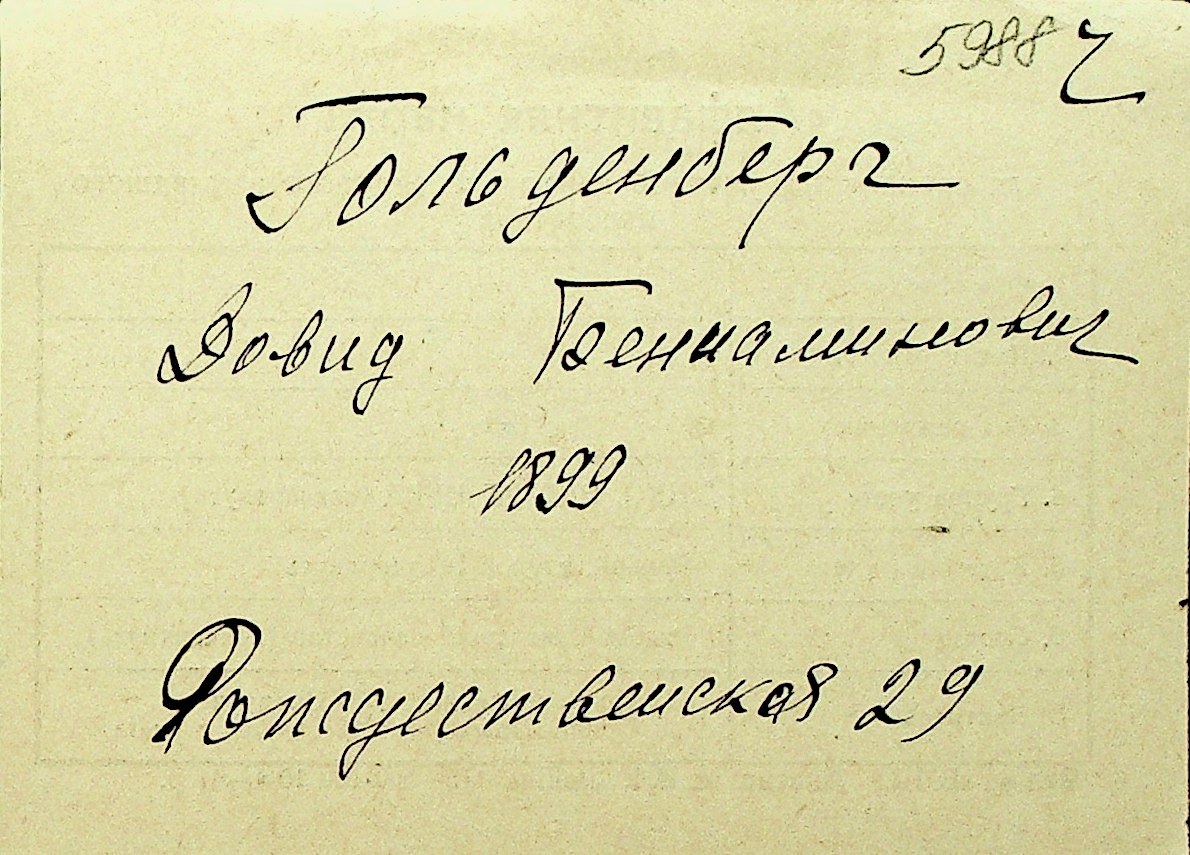 5988 ч
Гольденберг
Довид Бениаминович
1899
Рождественская 29